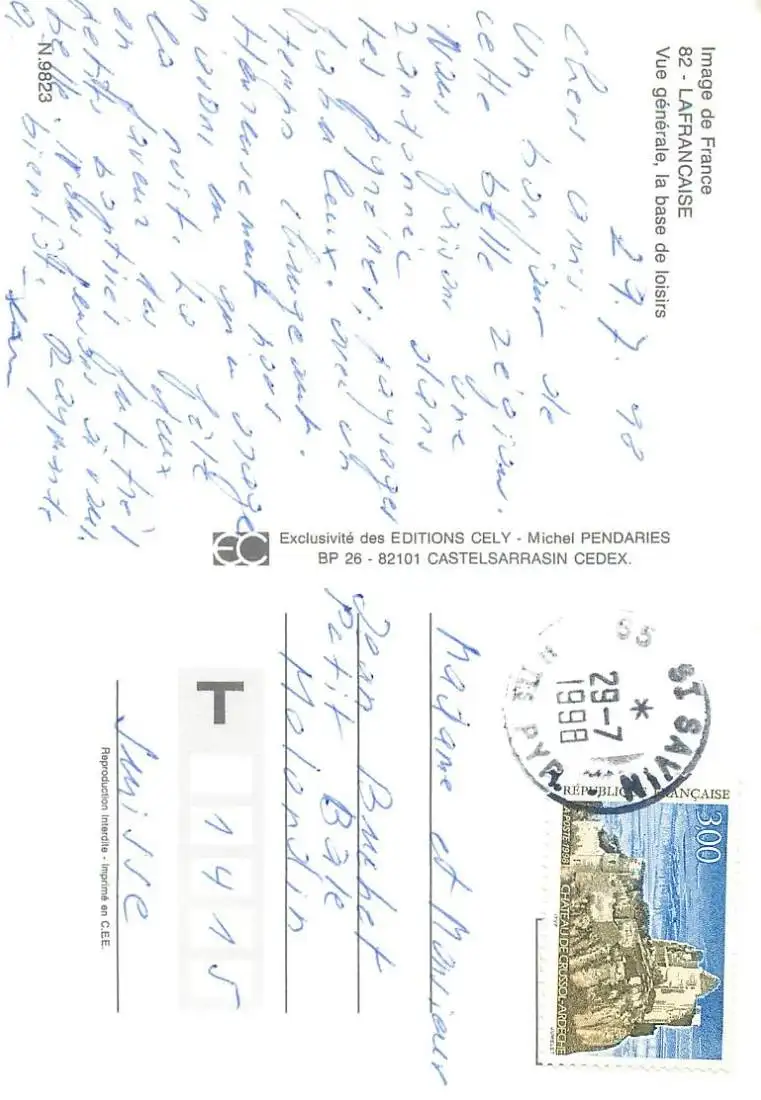 Image de France
82 - LAFRANCAISE
Vue générale, la base de loisirs
29.7.98
Chers amis,
Un bonjour de
cette belle région.
Nous faisons une
randonnée dans
les Pyrénées, paysages
fabuleux, avec un
temps changeant.
Heureusement nous
n'avons eu qu'un orage
la nuit. La fête
en faveur des deux
petits baptisés fut très
belle. Nous pensons à vous.
à bientôt. Raymonde
Jean
N.9823
EC
Exclusivité des EDITIONS CELY - Michel PENDARIES
BP 26 - 82101 CASTELSARRASIN CEDEX.
65 ST SAVIN
*
29-7
1998
PYR.
RÉPUBLIQUE FRANÇAISE
3,00
LA POSTE 1998
CHÂTEAU DE CRUSSOL-ARDÈCHE
JUMELET
Madame et Monsieur
Jean Bruhet
Petit Bâle
Molondin
T 1415
Suisse
Reproduction Interdite - Imprimé en C.E.E.